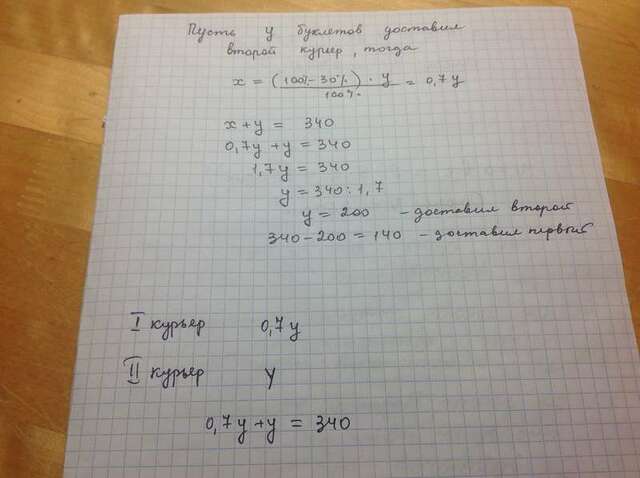 Пусть y буклетов доставил
второй курьер, тогда
x = (100% - 30%) · y / 100% = 0,7y
x + y = 340
0,7y + y = 340
1,7y = 340
y = 340 : 1,7
y = 200 - доставил второй
340 - 200 = 140 - доставил первый
I курьер 0,7y
II курьер y
0,7y + y = 340